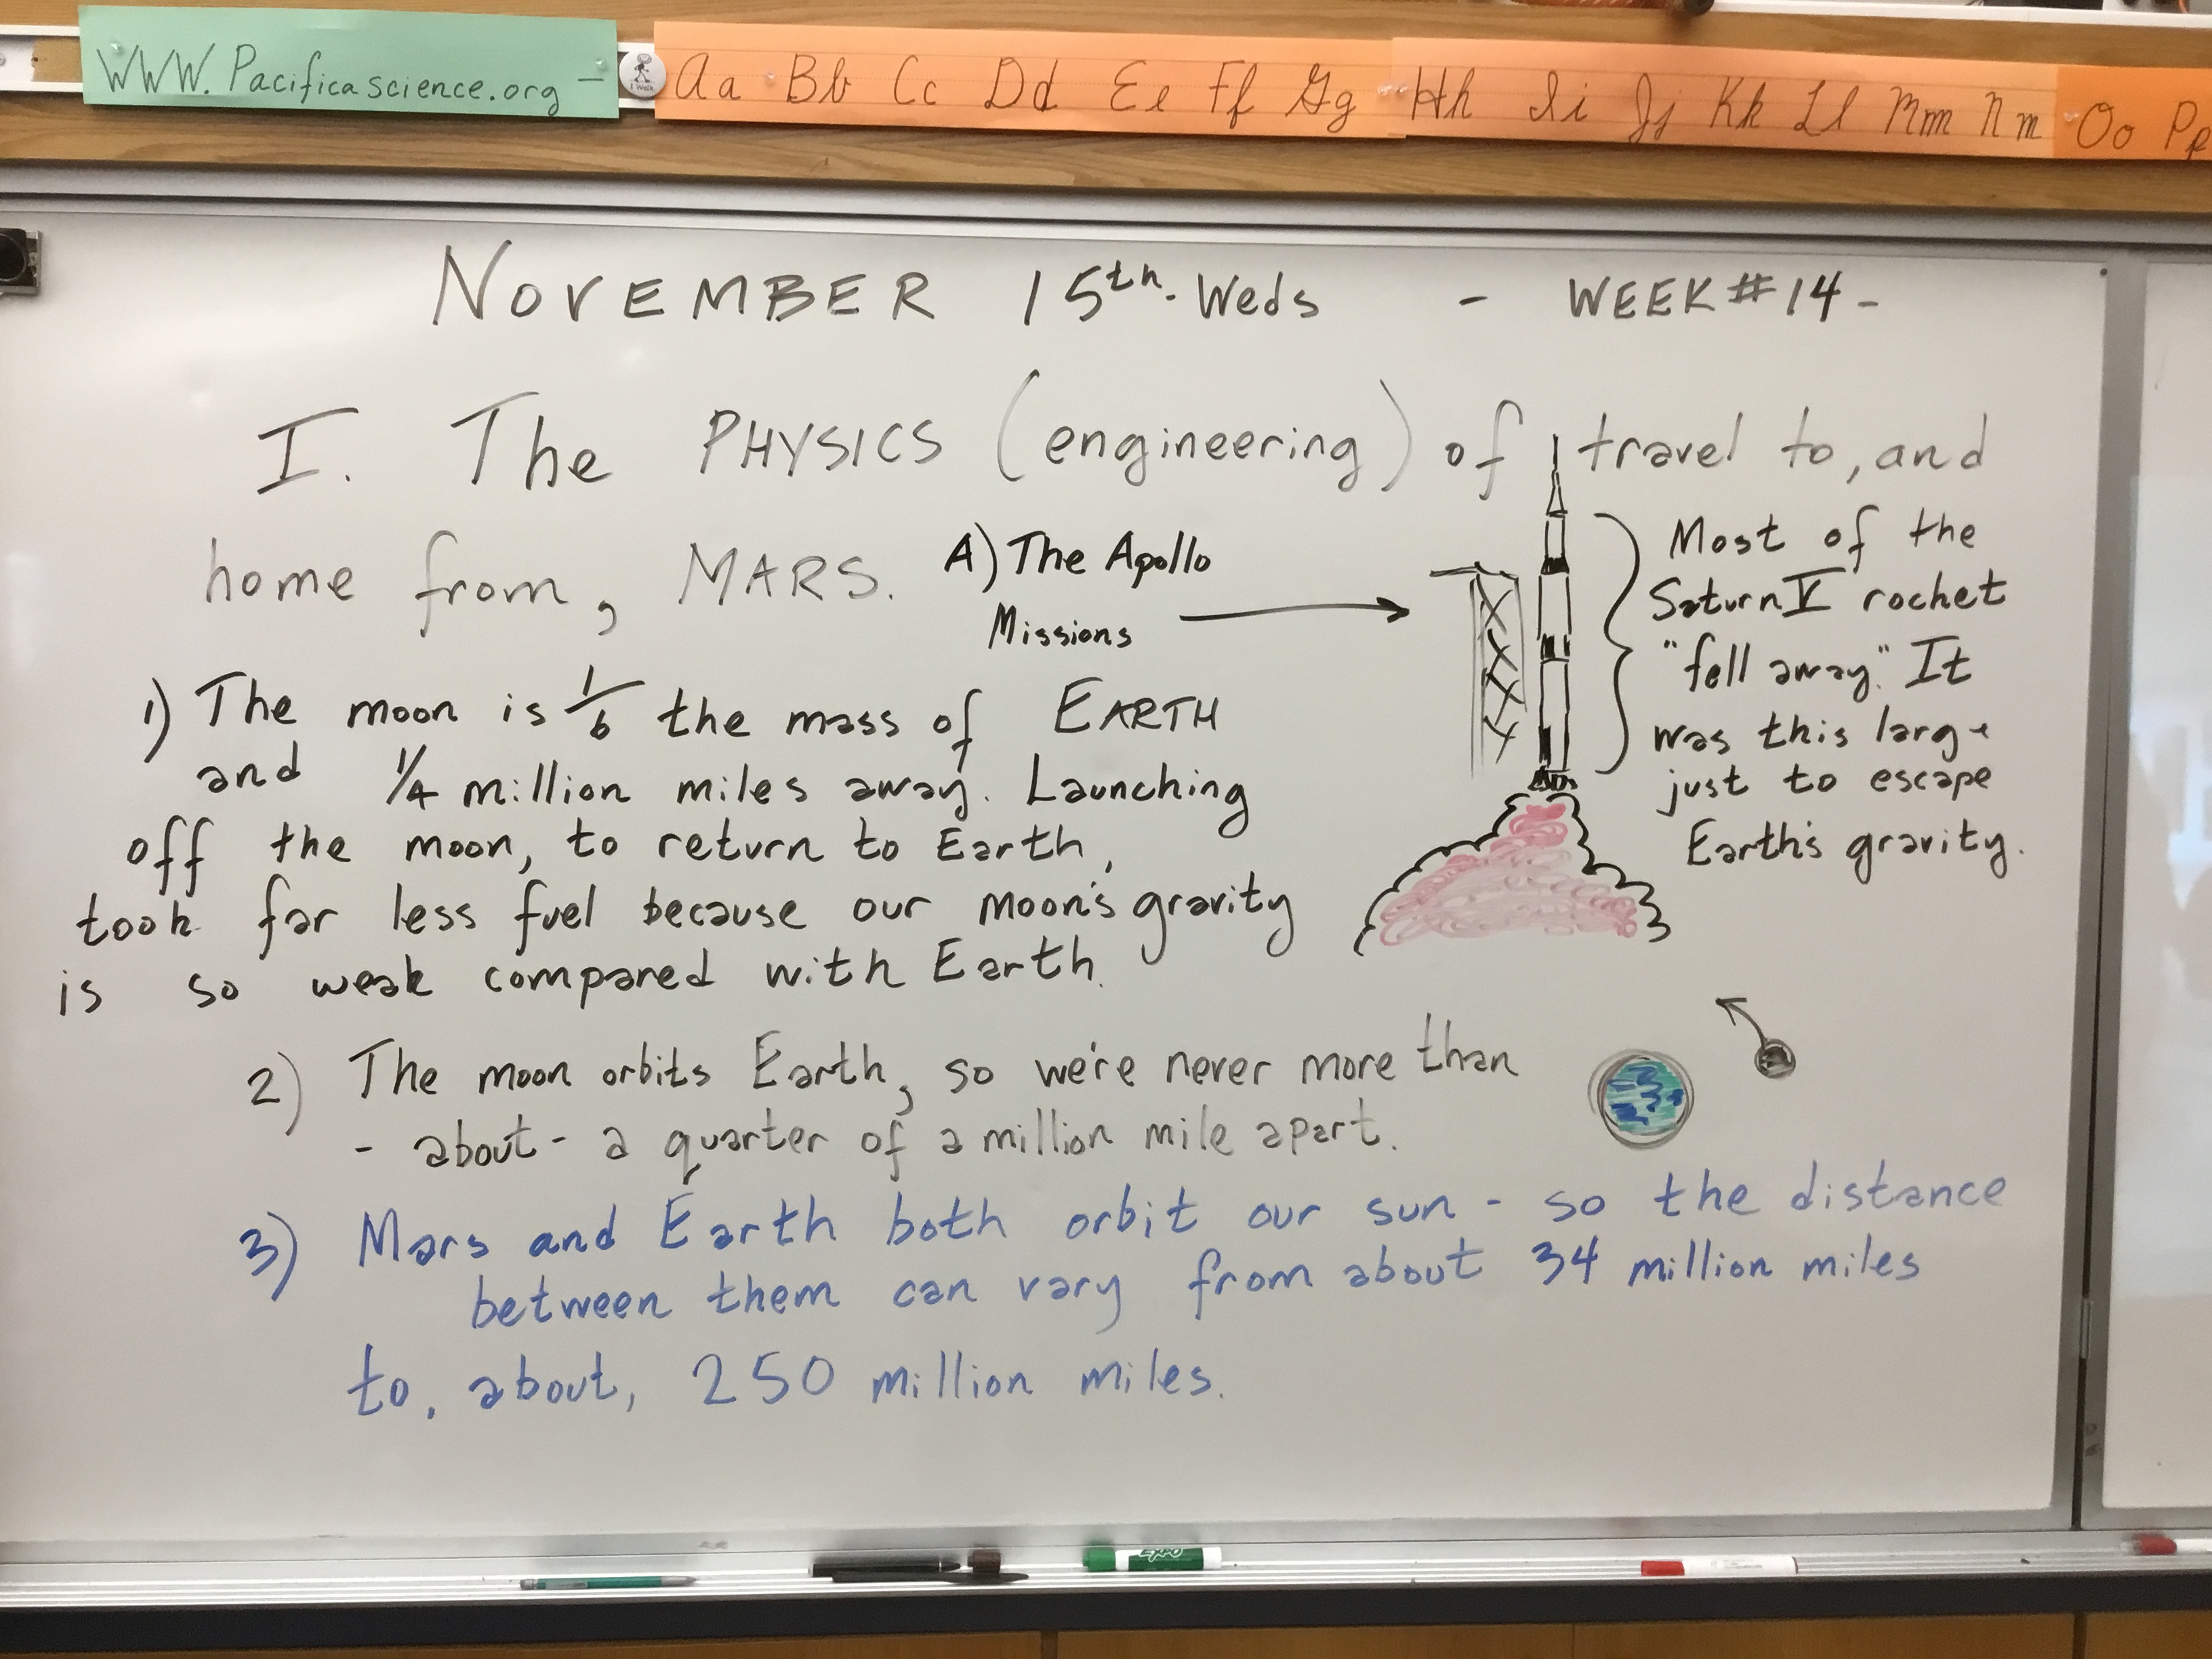 WWW.Pacificascience.org -
I Walk
Aa Bb Cc Dd Ee Ff Gg Hh Ii Jj Kk Ll Mm Nn Oo Pp
NOVEMBER 15th. Weds - WEEK #14 -
I. The PHYSICS (engineering) of travel to, and
home from, MARS.
A) The Apollo
Missions
Most of the
Saturn V rocket
"fell away." It
was this large
just to escape
Earth's gravity.
1) The moon is 1/6 the mass of EARTH
and 1/4 million miles away. Launching
off the moon, to return to Earth,
took far less fuel because our moon's gravity
is so weak compared with Earth.
2) The moon orbits Earth, so we're never more than
- about - a quarter of a million mile apart.
3) Mars and Earth both orbit our sun - so the distance
between them can vary from about 34 million miles
to, about, 250 million miles.
EXPO